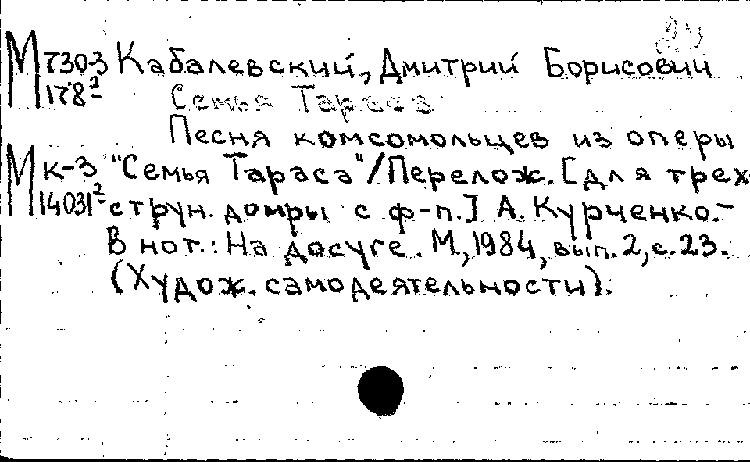 М 730-3 Кабалевский, Дмитрий Борисович
178²
Семья Тараса
Песня комсомольцев из оперы
М к-3 "Семья Тараса"/Перелож. [для трех-
14031² струн. домры с ф-п.] А. Курченко.-
В нот.: На досуге. М., 1984, вып. 2, с. 23.
(Худож. самодеятельности).